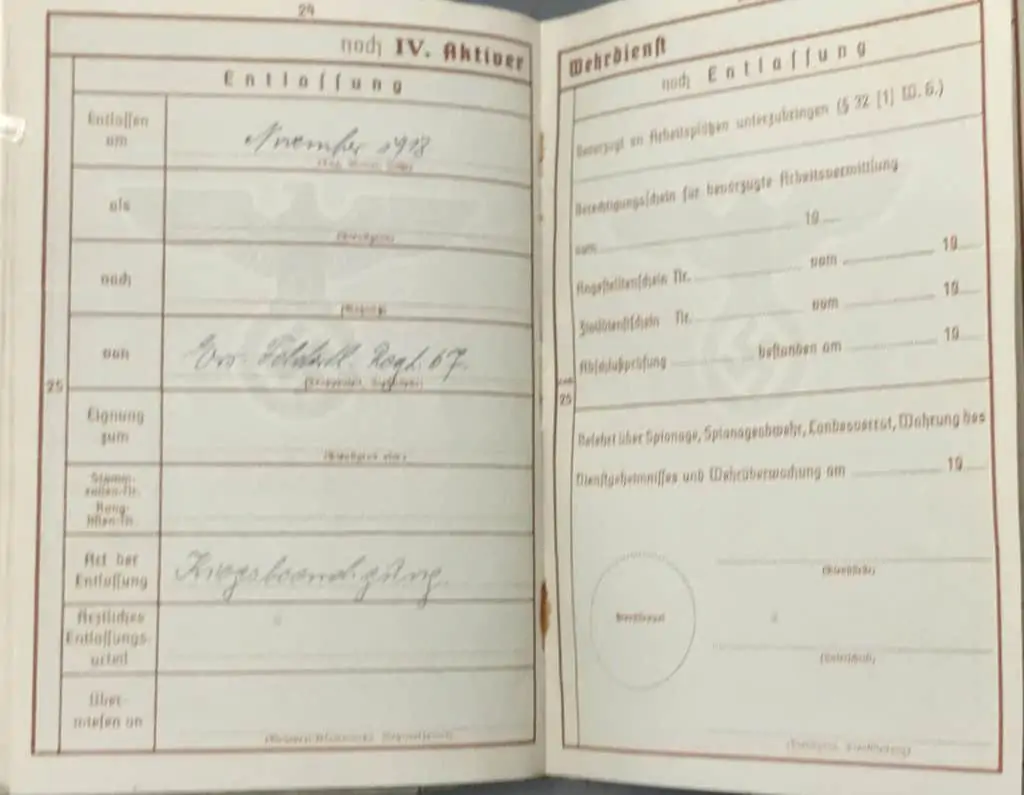 24
noch IV. Aktiver
Entlassung
Entlassen am
November 1918
als
nach
von
Ers. Feldartl. Regt. 67.
25
Eignung zum
Art der Entlassung
Kriegsbeendigung
Ärztliches Entlassungs-urteil
Über-wiesen an
Wehrdienst
noch Entlassung
Bevorzugt an Arbeitsplätzen unterzubringen (§ 32 [1] W. G.)
Berechtigungsschein für bevorzugte Arbeitsvermittlung
vom 19
Angestelltenschein Nr. vom 19
Zivildienstschein Nr. vom 19
Abschlußprüfung bestanden am 19
noch
25
Belehrt über Spionage, Spionageabwehr, Landesverrat, Wahrung des
Dienstgeheimnisses und Wehrüberwachung am 19
Dienststempel
(Dienststelle)
(Unterschrift)